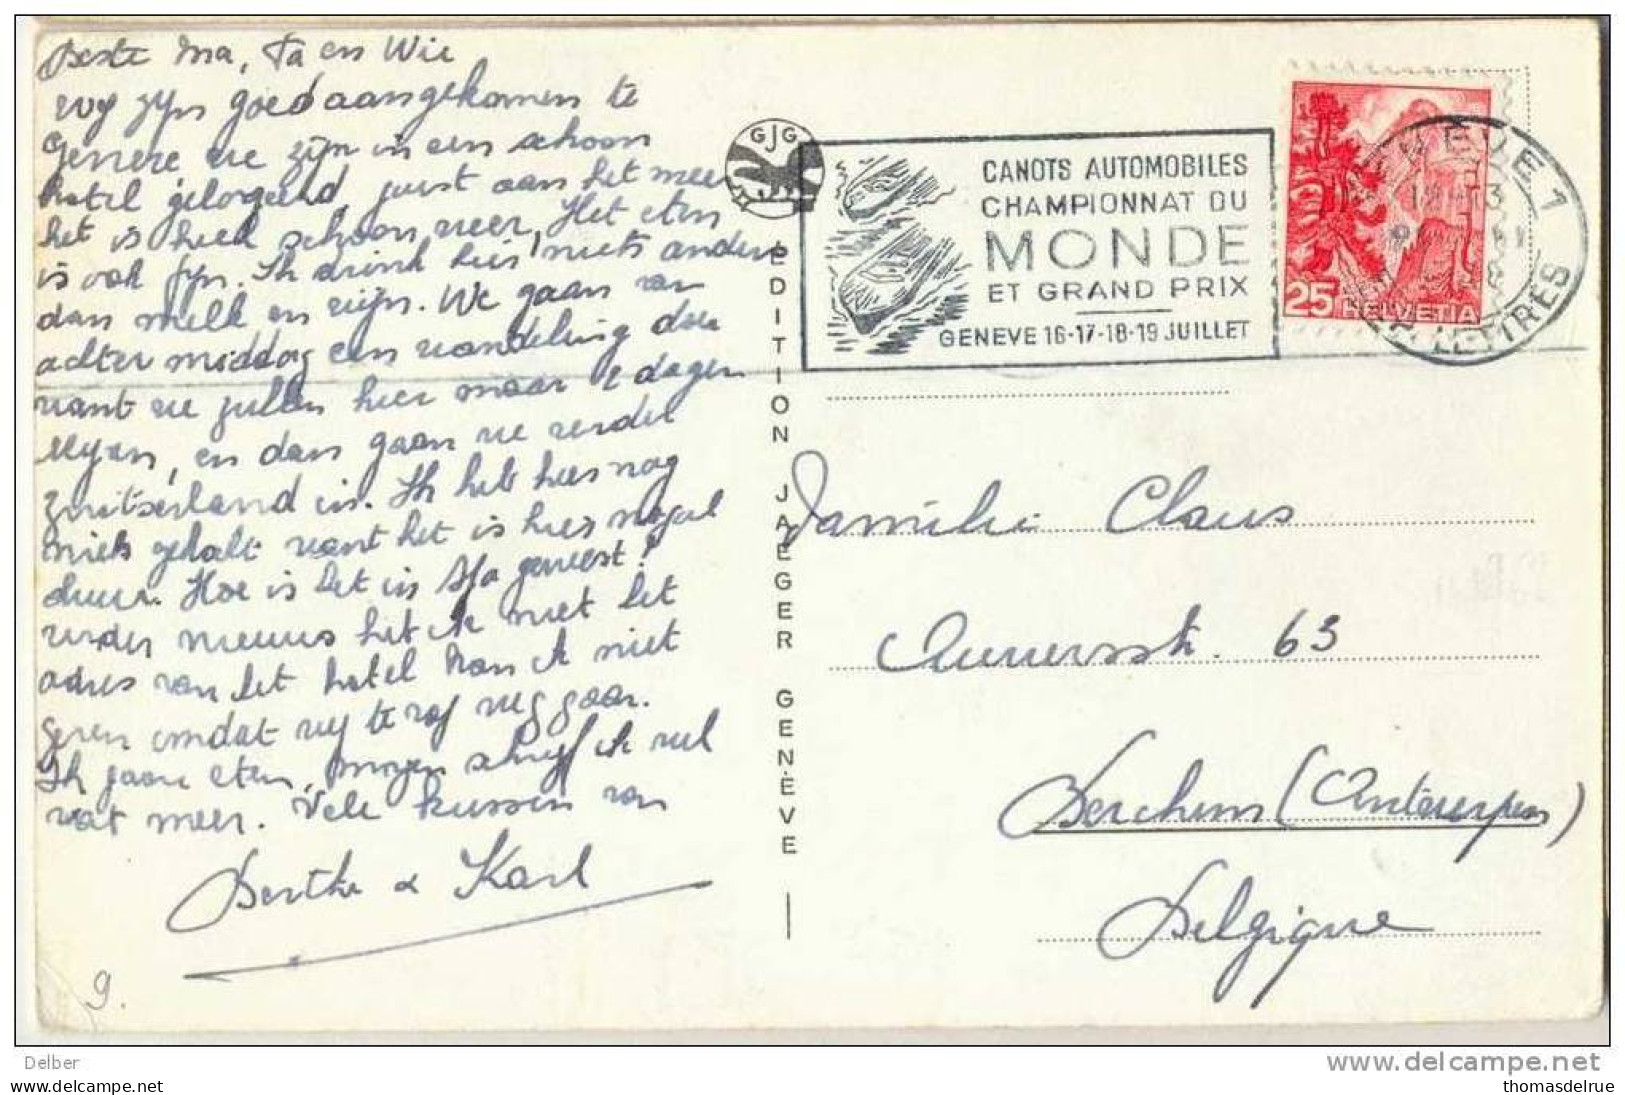 Beste Ma, Pa en Wie
wij zijn goed aangekomen te
Geneve we zijn in een schoon
hotel gelogeerd, juist aan het meer
het is heel schoon weer, Het eten
is ook fijn. Ik drink hier niets anders
dan melk en wijn. We gaan van
achter middag een wandeling doen
want we zullen hier maar 2 dagen
en dan gaan we verder
Zwitserland in. Ik heb hier nog
niets gehalt want het is hier nogal
duur. Hoe is het in Spa geweest?
verder nieuws heb ik niet het
adres van het hotel kan ik niet
geven omdat wij te rap weg gaan.
Ik gaan eten, morgen schrijf ik wel
wat meer. Vele kussen van
Berthe & Karl
9.
GJG
ÉDITION JAEGER GENÈVE
CANOTS AUTOMOBILES
CHAMPIONNAT DU
MONDE
ET GRAND PRIX
GENEVE 16-17-18-19 JUILLET
25 HELVETIA
GENEVE 1
LETTRES
Familie Claus
63
Berchem (Antwerpen)
Belgique
Delber
www.delcampe.net
position only
thomasdelrue